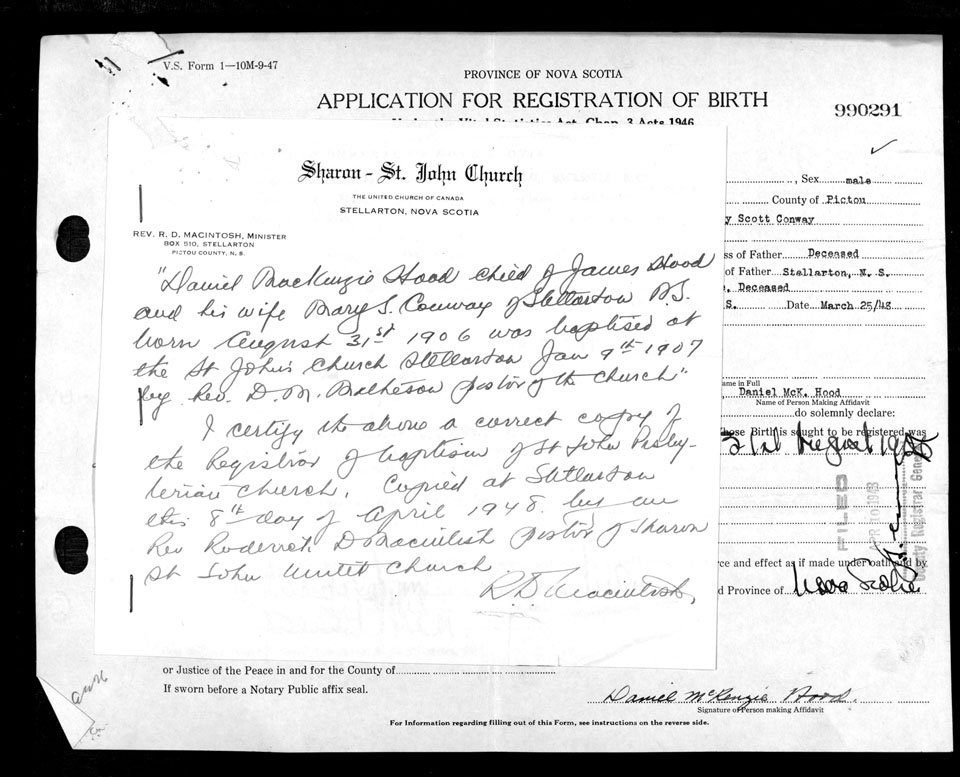 V.S. Form 1—10M-9-47
PROVINCE OF NOVA SCOTIA
APPLICATION FOR REGISTRATION OF BIRTH
990291
Under the Vital Statistics Act, Chap. 3 Acts 1946
Sharon - St. John Church
THE UNITED CHURCH OF CANADA
STELLARTON, NOVA SCOTIA
REV. R. D. MACINTOSH, MINISTER
BOX 510, STELLARTON
PICTOU COUNTY, N. S.
"Daniel MacKenzie Hood child of James Hood
and his wife Mary S. Conway of Stellarton N.S.
born August 31st 1906 was baptised at
the St John's Church Stellarton Jan 9th 1907
by Rev. D. M. Matheson pastor of the church"
I certify the above a correct copy of
the Registrar of baptism of St John Presby-
terian church. Copied at Stellarton
this 8th day of April 1948 by me
Rev Roderick D Macintosh pastor of Sharon
St John United Church
R. D. Macintosh
, Sex male
County of Pictou
y Scott Conway
ss of Father Deceased
of Father Stellarton, N. S.
, Deceased
S. Date March 25/48
ame in Full
, Daniel McK. Hood
Name of Person Making Affidavit
do solemnly declare:
hose Birth is sought to be registered was
31st August 1906
FILED
APR 10 1948
rce and effect as if made under oath
d Province of Nova Scotia
or Justice of the Peace in and for the County of
If sworn before a Notary Public affix seal.
Daniel McKenzie Hood.
Signature of Person making Affidavit
For Information regarding filling out of this Form, see instructions on the reverse side.